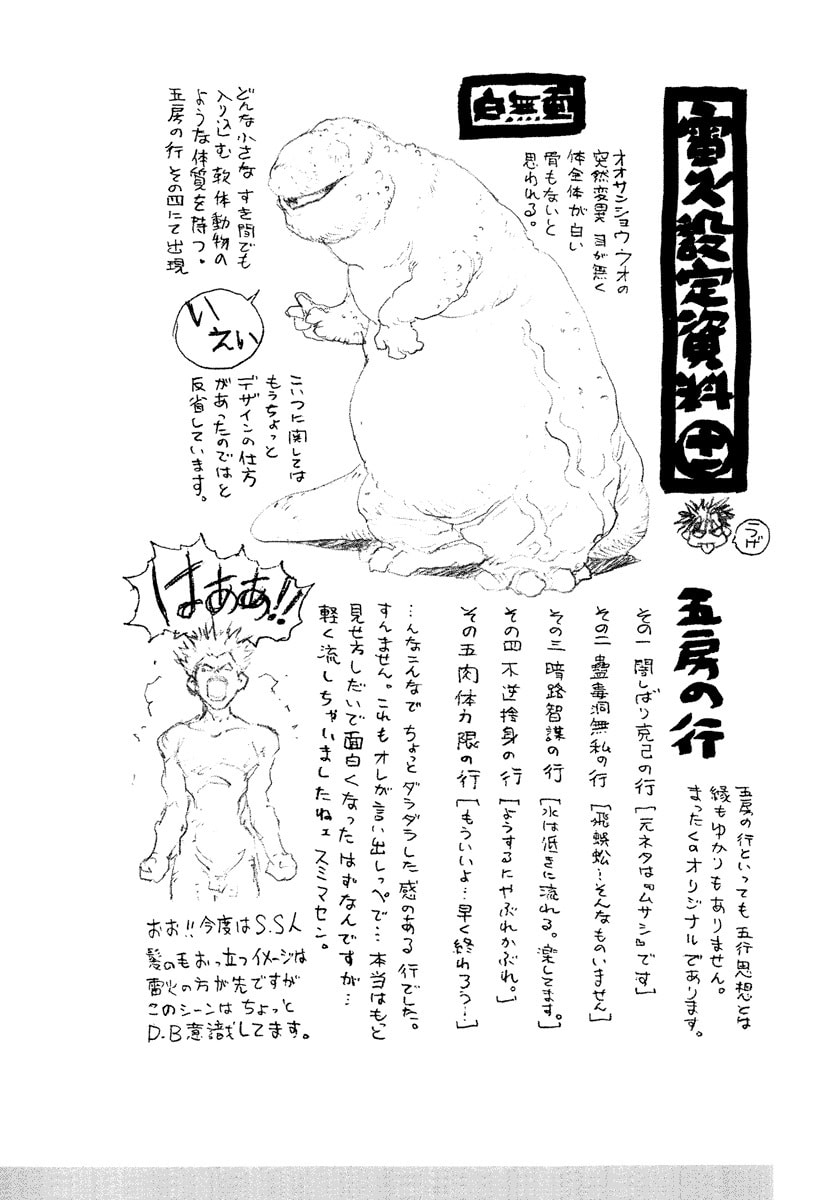 雷火設定資料
十一
うげ
白無垂
オオサンショウ・ウオの
突然変異 目が無く
体全体が白い
骨もないと
思われる。
どんな小さな すき間でも
入り込む軟体動物の
ような体質を持つ。
五房の行 その四にて出現
いえい
こいつに関しては
もうちょっと
デザインの仕方
があったのではと
反省しています。
五房の行
五房の行といっても 五行思想とは
縁もゆかりもありません。
まったくのオリジナルであります。
その一 闇しばり克己の行 [元ネタは『ムサシ』です]
その二 蠱毒洞無私の行 [飛蜈蚣…そんなものいません]
その三 暗路智謀の行 [水は低きに流れる。楽してます。]
その四 不逆捨身の行 [ようするにやぶれかぶれ。]
その五 肉体力限の行 [もういいよ…早く終わろう…]
…んなこんなで ちょっと ダラダラした感のある 行でした。
すんません。これもオレが言い出しっぺで… 本当はもっと
見せ方しだいで面白くなったはずなんですが…
軽く流しちゃいましたねェ スミマセン。
はああ!!
おお!!今度はS.S人
髪の毛おっ立つイメージは
雷火の方が先ですが
このシーンは ちょっと
D.B意識してます。